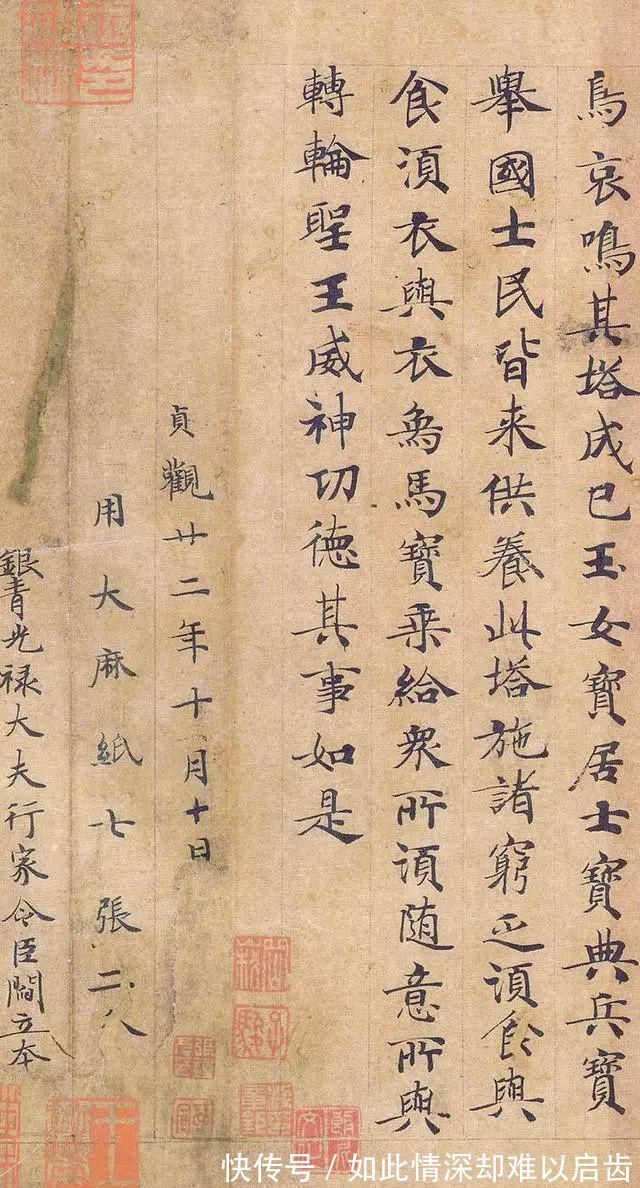 鳥哀鳴其塔成已玉女寶居士寶典兵寶
舉國士民皆来供養此塔施諸窮乏湏食與
食湏衣與衣象馬寶乗給衆所湏随意所與
轉輪聖王威神功德其事如是
貞觀廿二年十月十日
用大麻紙七張二分
銀青光禄大夫行家令臣閻立本
快传号/如此情深却难以启齿